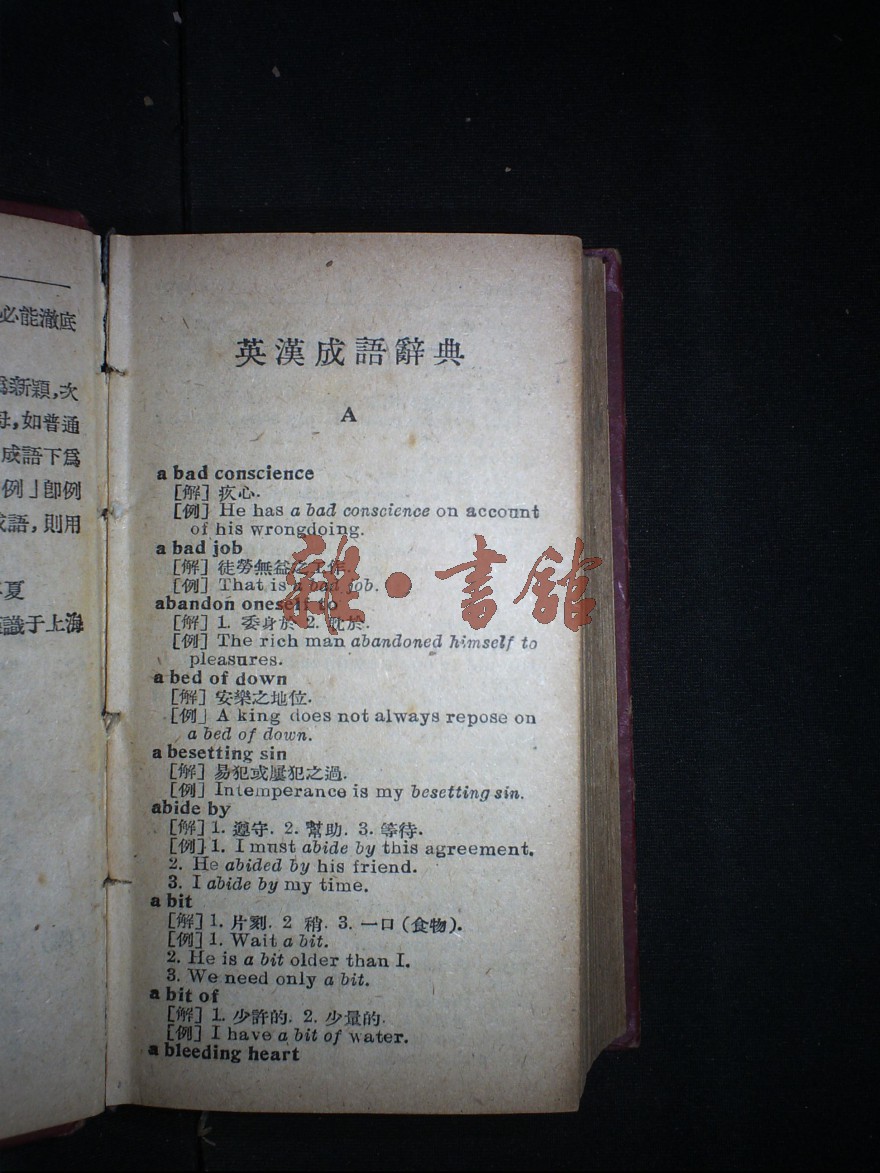 必能澈底
爲新穎,次
母,如普通
成語下爲
例」卽例
成語,則用
夏
識于上海
英漢成語辭典
A
a bad conscience
[解] 疚心.
[例] He has a bad conscience on account
of his wrongdoing.
a bad job
[解] 徒勞無益之工作.
[例] That is a bad job.
abandon oneself to
[解] 1. 委身於 2. 耽於.
[例] The rich man abandoned himself to
pleasures.
a bed of down
[解] 安樂之地位.
[例] A king does not always repose on
a bed of down.
a besetting sin
[解] 易犯或屢犯之過.
[例] Intemperance is my besetting sin.
abide by
[解] 1. 遵守. 2. 幫助. 3. 等待.
[例] 1. I must abide by this agreement.
2. He abided by his friend.
3. I abide by my time.
a bit
[解] 1. 片刻. 2 稍. 3. 一口(食物).
[例] 1. Wait a bit.
2. He is a bit older than I.
3. We need only a bit.
a bit of
[解] 1. 少許的. 2. 少量的.
[例] I have a bit of water.
a bleeding heart
雜·書館